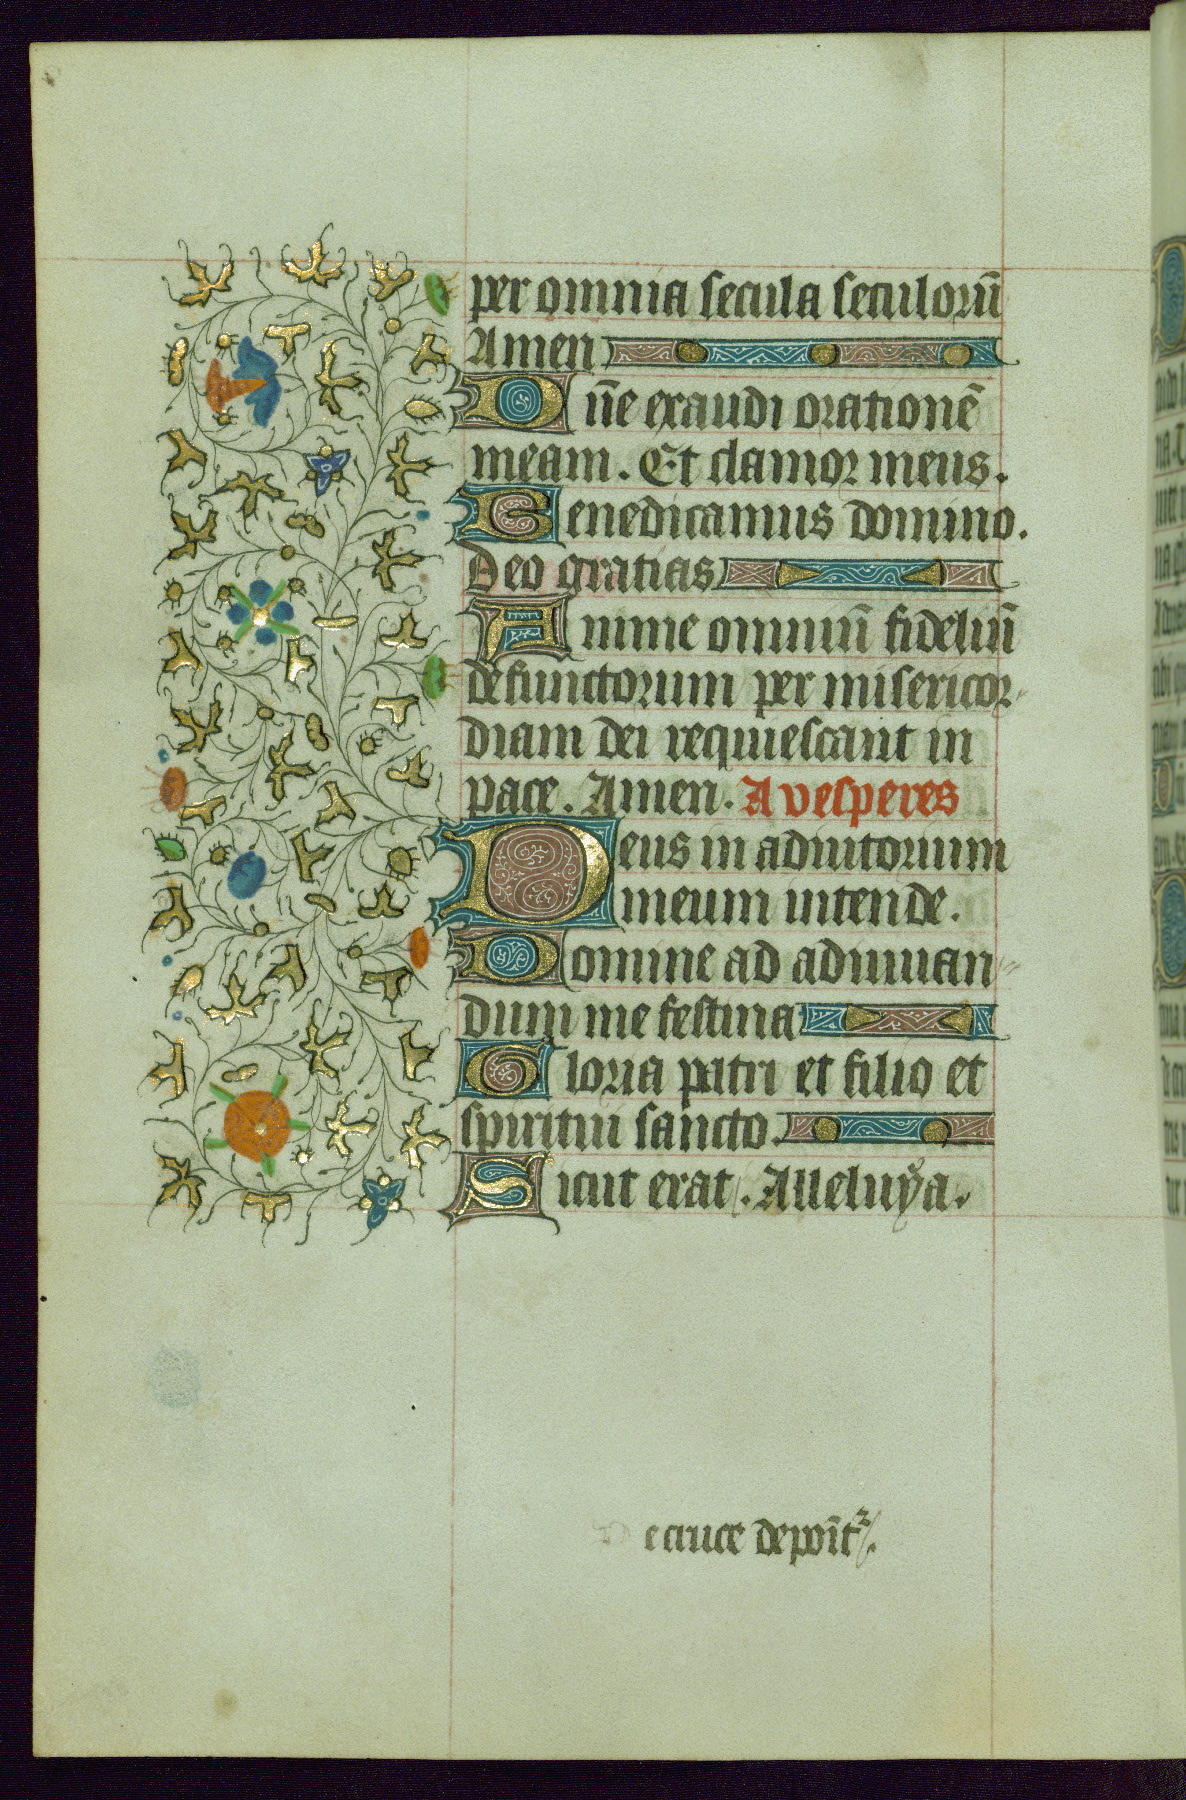 per omnia secula seculorū
Amen
Dn̄e exaudi orationē
meam. Et clamor meus.
Benedicamus domino.
Deo gratias
Anime omniū fideliū
defunctorum per misericor-
diam dei requiescant in
pace. Amen. A vesperes
Deus in adiutorium
meum intende.
Domine ad adiuuan
dum me festina
Gloria patri et filio et
spiritui sancto.
Sicut erat. Alleluya.
e cruce deponit᷑.